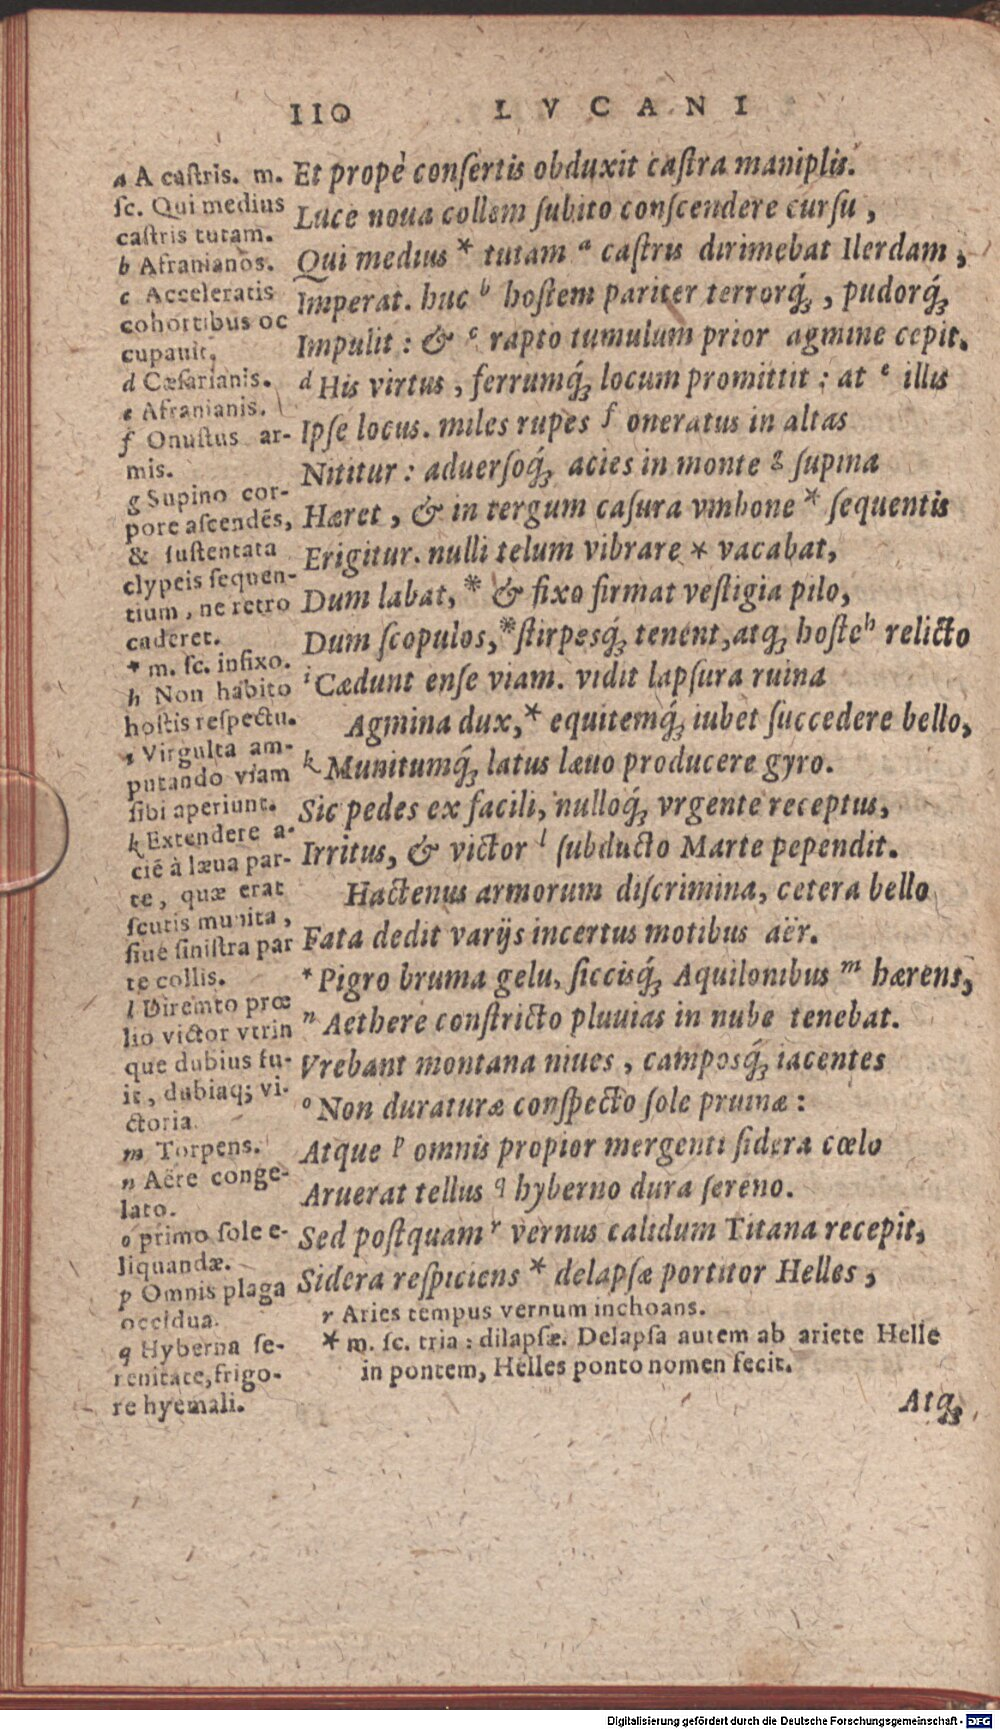 110 LVCANI
Et propè conſertis obduxit caſtra maniplis.
Luce noua collem ſubito conſcendere curſu,
Qui medius * tutam ᵃ caſtris dirimebat Ilerdam,
Imperat. huc ᵇ hoſtem pariter terrorq́;, pudorq́;
Impulit: & ᶜ rapto tumulum prior agmine cepit.
ᵈ His virtus, ferrumq́; locum promittit: at ᵉ illis
Ipſe locus. miles rupes ᶠ oneratus in altas
Nititur: aduerſoq́; acies in monte ᵍ ſupina
Hæret, & in tergum caſura vmbone * ſequentis
Erigitur. nulli telum vibrare * vacabat,
Dum labat, * & fixo firmat veſtigia pilo,
Dum ſcopulos, * ſtirpesq́; tenent, atq; hoſte ʰ relicto
ⁱ Cædunt enſe viam. vidit lapſura ruina
Agmina dux, * equitemq́; iubet ſuccedere bello,
ᵏ Munitumq́; latus læuo producere gyro.
Sic pedes ex facili, nulloq́; vrgente receptus,
Irritus, & victor ˡ ſubducto Marte pependit.
Hactenus armorum diſcrimina, cetera bello
Fata dedit varijs incertus motibus aër.
* Pigro bruma gelu, ſiccisq́; Aquilonibus ᵐ hærens,
ⁿ Aethere conſtricto pluuias in nube tenebat.
Vrebant montana niues, camposq́; iacentes
ᵒ Non duraturæ conſpecto ſole pruinæ:
Atque ᵖ omnis propior mergenti ſidera cœlo
Aruerat tellus q hyberno dura ſereno.
Sed poſtquam ʳ vernus calidum Titana recepit,
Sidera reſpiciens * delapſæ portitor Helles,
a A caſtris. m.
ſc. Qui medius
caſtris tutam.
b Afranianos.
c Acceleratis
cohortibus oc
cupauit.
d Cæſarianis.
e Afranianis.
f Onuſtus ar-
mis.
g Supino cor-
pore aſcendẽs,
& ſuſtentata
clypeis ſequen-
tium, ne retro
caderet.
* m. ſc. infixo.
h Non habito
hoſtis reſpectu.
i Virgulta am-
putando viam
ſibi aperiunt.
k Extendere a-
ciẽ à læua par-
te, quæ erat
ſcutis munita,
ſiue ſiniſtra par
te collis.
l Diremto prœ
lio victor vtrin
que dubius fu-
it, dubiaq; vi-
ctoria.
m Torpens.
n Aëre conge-
lato.
o primo ſole e-
liquandæ.
p Omnis plaga
occidua.
q Hyberna ſe-
renitate, frigo-
re hyemali.
r Aries tempus vernum inchoans.
* m. ſc. tria: dilapſæ. Delapſa autem ab ariete Helle
in pontem, Helles ponto nomen fecit.
Atq;
Digitalisierung gefördert durch die Deutsche Forschungsgemeinschaft - DFG